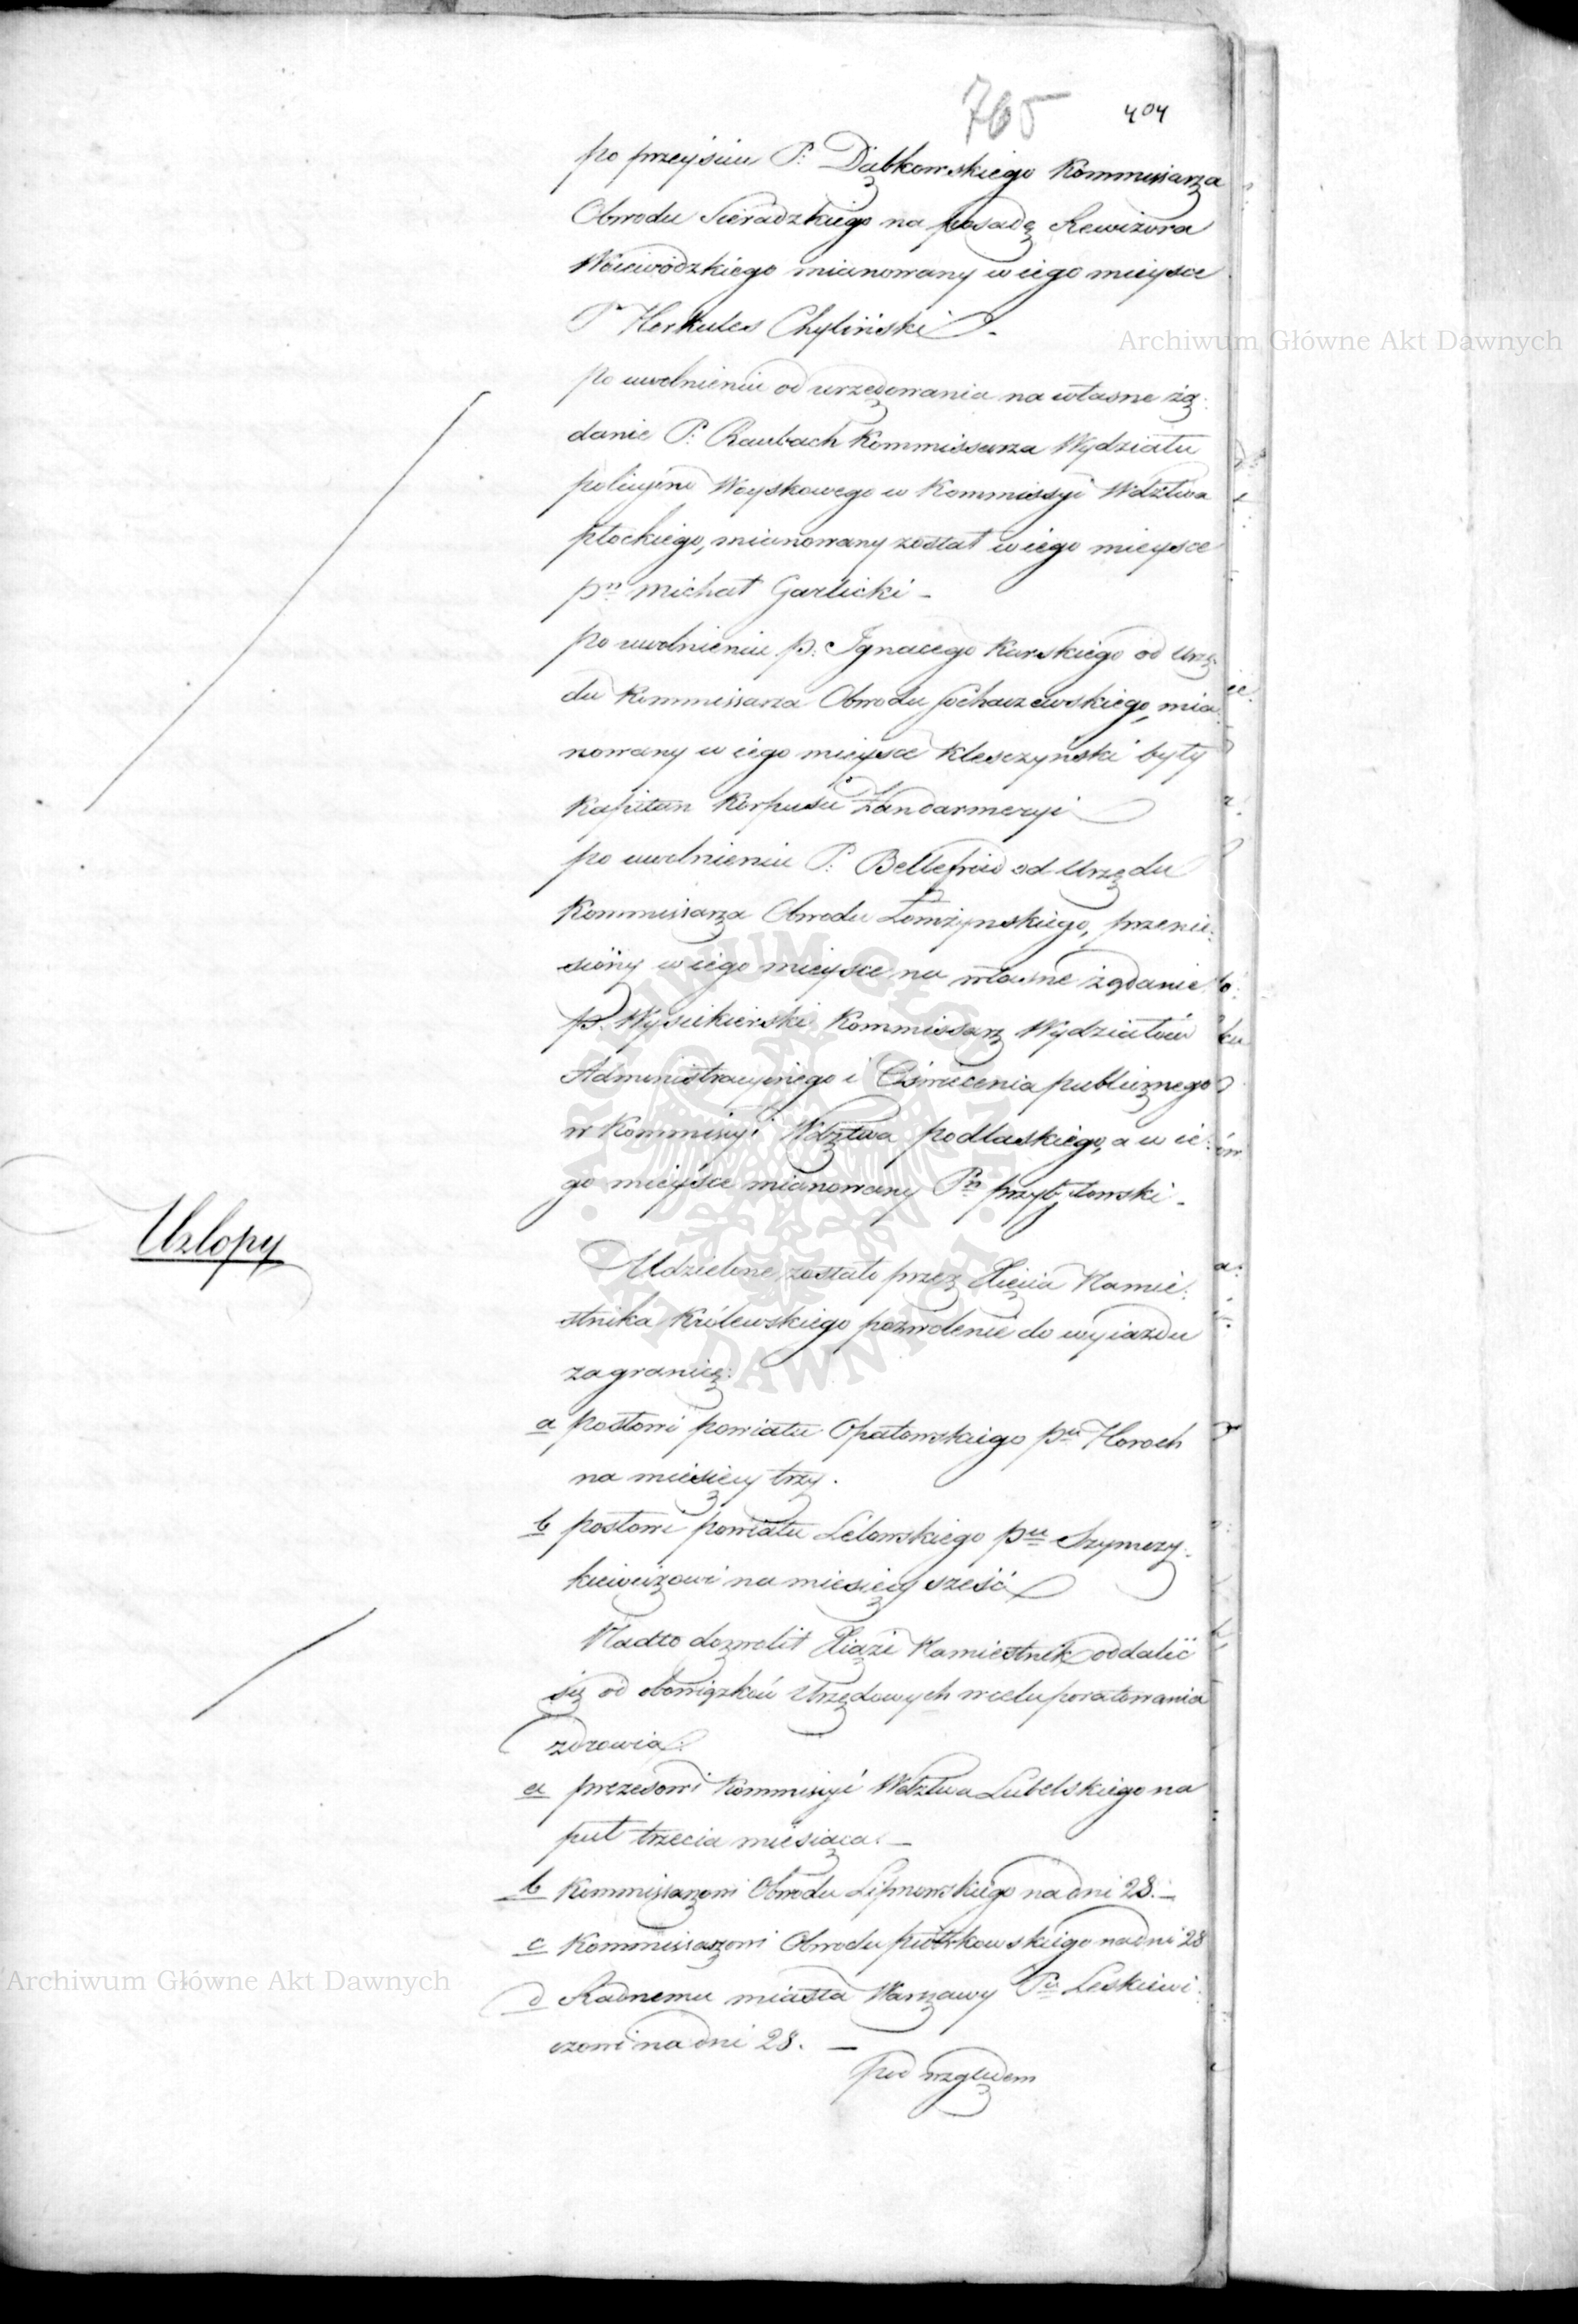 765 404
po przeyściu P. Dąbkowskiego Kommissarza
Obwodu Sieradzkiego na posadę Rewizora
Woiewódzkiego mianowany w iego mieysce
P. Herkules Chyliński.
po uwolnieniu od urzędowania na własne żą:
danie P. Raubach Kommissarza Wydziału
policyino Woyskowego w Kommissyi Wdztwa
płockiego, mianowany został w iego mieysce
pn Michał Garlicki —
po uwolnieniu p. Ignacego Kurskiego od urzę:
du Kommissarza Obwodu Sochaczewskiego, mia:
nowany w iego mieysce Kleszczyński były
Kapitan Korpusu Żandarmeryi
po uwolnieniu P. Bellefroid od Urzędu
Kommissarza Obwodu Łomżyńskiego, przenie:
siony w iego mieysce na własne żądanie
p. Wysiekierski Kommissarz Wydziałów
Administracyinego i Oświecenia publicznego
w Kommissyi Wdztwa podlaskiego, a w ie:
go mieysce mianowany Pn przybyłowski —
Urlopy
Udzielone zostało przez Xięcia Namie:
stnika Królewskiego pozwolenie do wyiazdu
zagranicę:
a posłowi powiatu Opatowskiego pu Horoch
na miesięcy trzy.
b posłowi powiatu Lelowskiego pu Szymczy:
kiewiczowi na miesięcy sześć
Nadto dozwolił Xiąże Namiestnik oddalić
się od obowiązków Urzędowych w celu poratowania
zdrowia:
a prezesowi Kommissyi Wdztwa Lubelskiego na
puł trzecia miesiąca. —
b Kommissarzowi Obwodu Lipnowskiego na dni 28. —
c Kommissarzowi Obwodu piotrkowskiego na dni 28
d Radnemu miasta Warszawy Pu Leskiewi:
czowi na dni 28. —
pod względem
Archiwum Główne Akt Dawnych
Archiwum Główne Akt Dawnych
ARCHIWUM GŁÓWNE AKT DAWNYCH